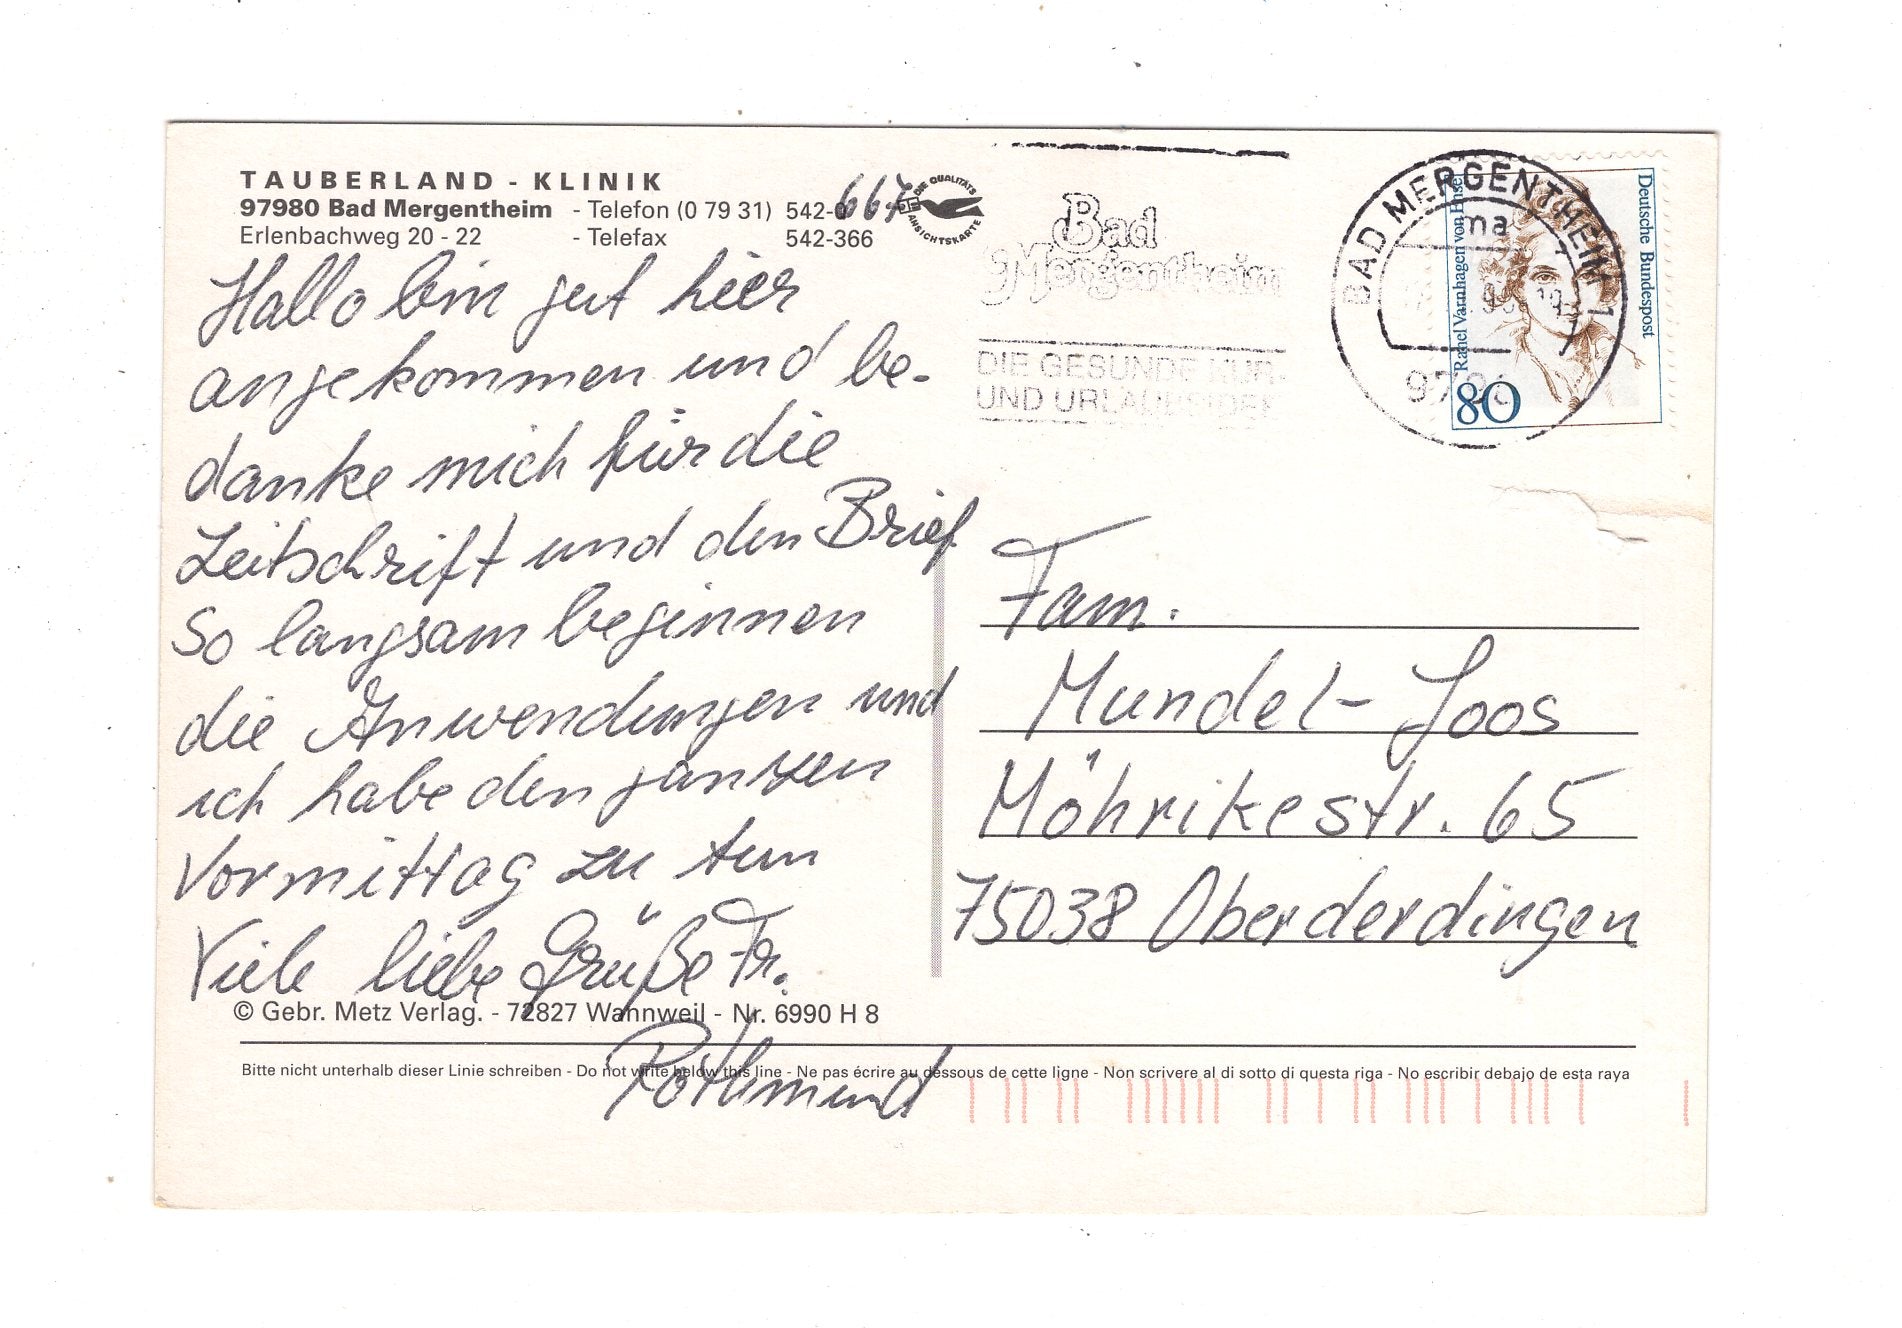 TAUBERLAND - KLINIK
97980 Bad Mergentheim - Telefon (0 79 31) 542-0 667
Erlenbachweg 20 - 22 - Telefax 542-366
DIE QUALITÄTS
ANSICHTSKARTE
Hallo bin gut hier
angekommen und be-
danke mich für die
Zeitschrift und den Brief
So langsam beginnen
die Anwendungen und
ich habe den ganzen
Vormittag zu tun
Viele liebe Grüße Fr.
Rothmund
© Gebr. Metz Verlag. - 72827 Wannweil - Nr. 6990 H 8
Bitte nicht unterhalb dieser Linie schreiben - Do not write below this line - Ne pas écrire au dessous de cette ligne - Non scrivere al di sotto di questa riga - No escribir debajo de esta raya
Bad
Mergentheim
DIE GESUNDE KUR-
UND URLAUBSIDEE
BAD MERGENTHEIM 1
ma
Rahel Varnhagen von Ense
Deutsche Bundespost
80
Fam.
Mundel-Joos
Möhrikestr. 65
75038 Oberderdingen